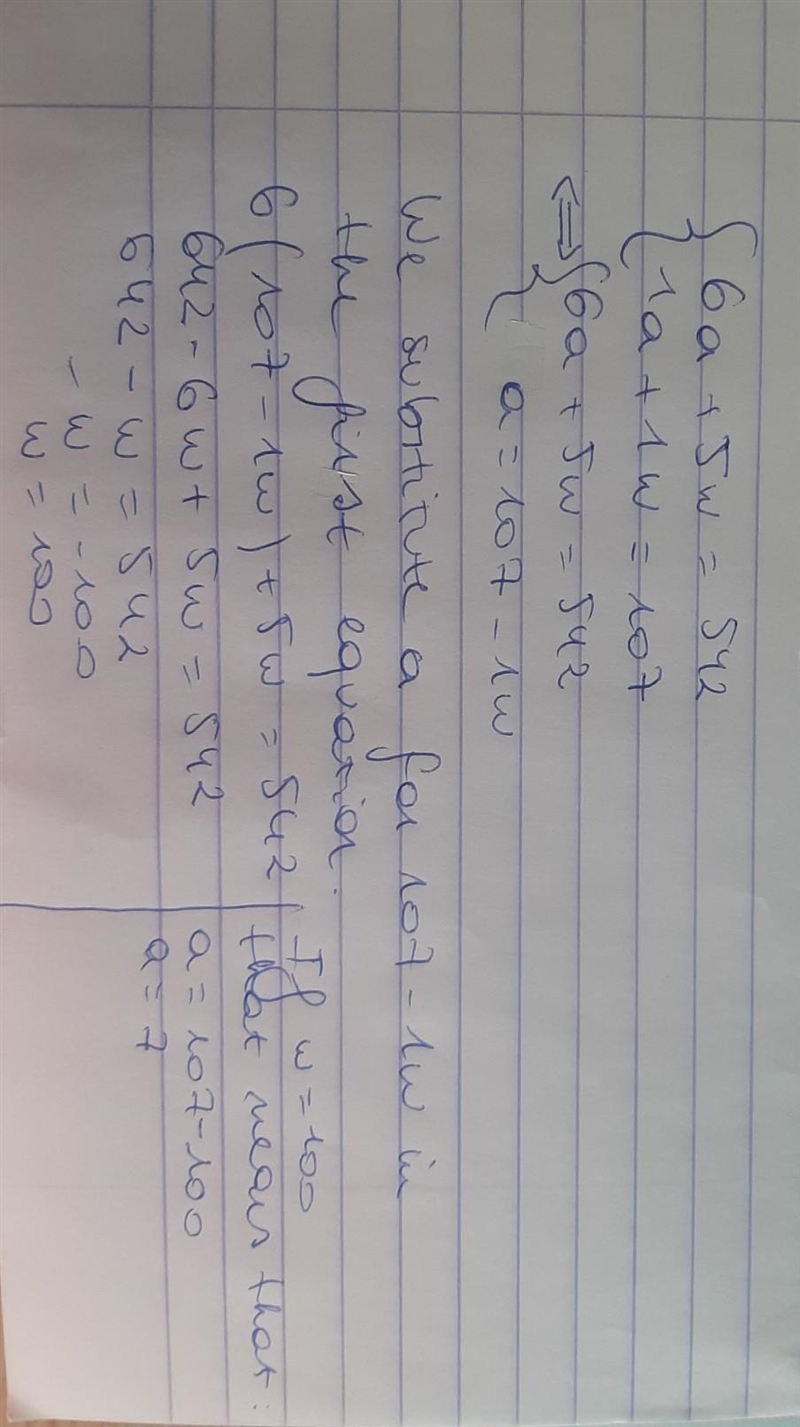 { 6a + 5w = 542
{ 1a + 1w = 107
⟺ { 6a + 5w = 542
{ a = 107 - 1w
We substitute a for 107 - 1w in
the first equation.
6(107 - 1w) + 5w = 542
642 - 6w + 5w = 542
642 - w = 542
- w = -100
w = 100
If w = 100
that means that:
a = 107 - 100
a = 7